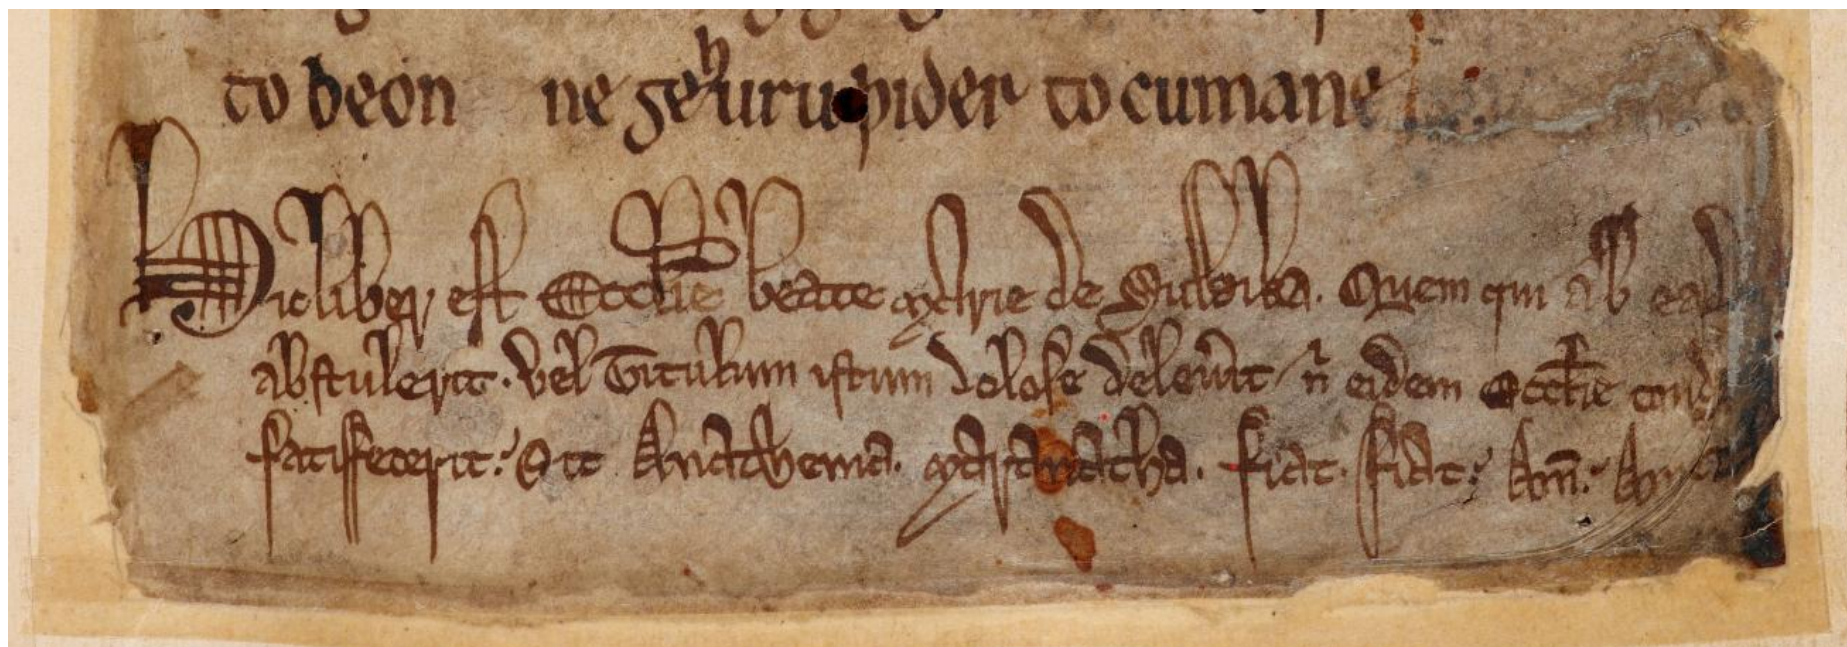 to beon ne gehuru þider to cumane
Hic liber est Ecclie beate Marie de Suwika. Quem qui ab ead
abstulerit. vel Titulum istum dolose deleu̅it n̅ eidem Ecclie cond
satisfecerit: Sit Anathema. Maranatha. fiat. fiat: Am̅. Am